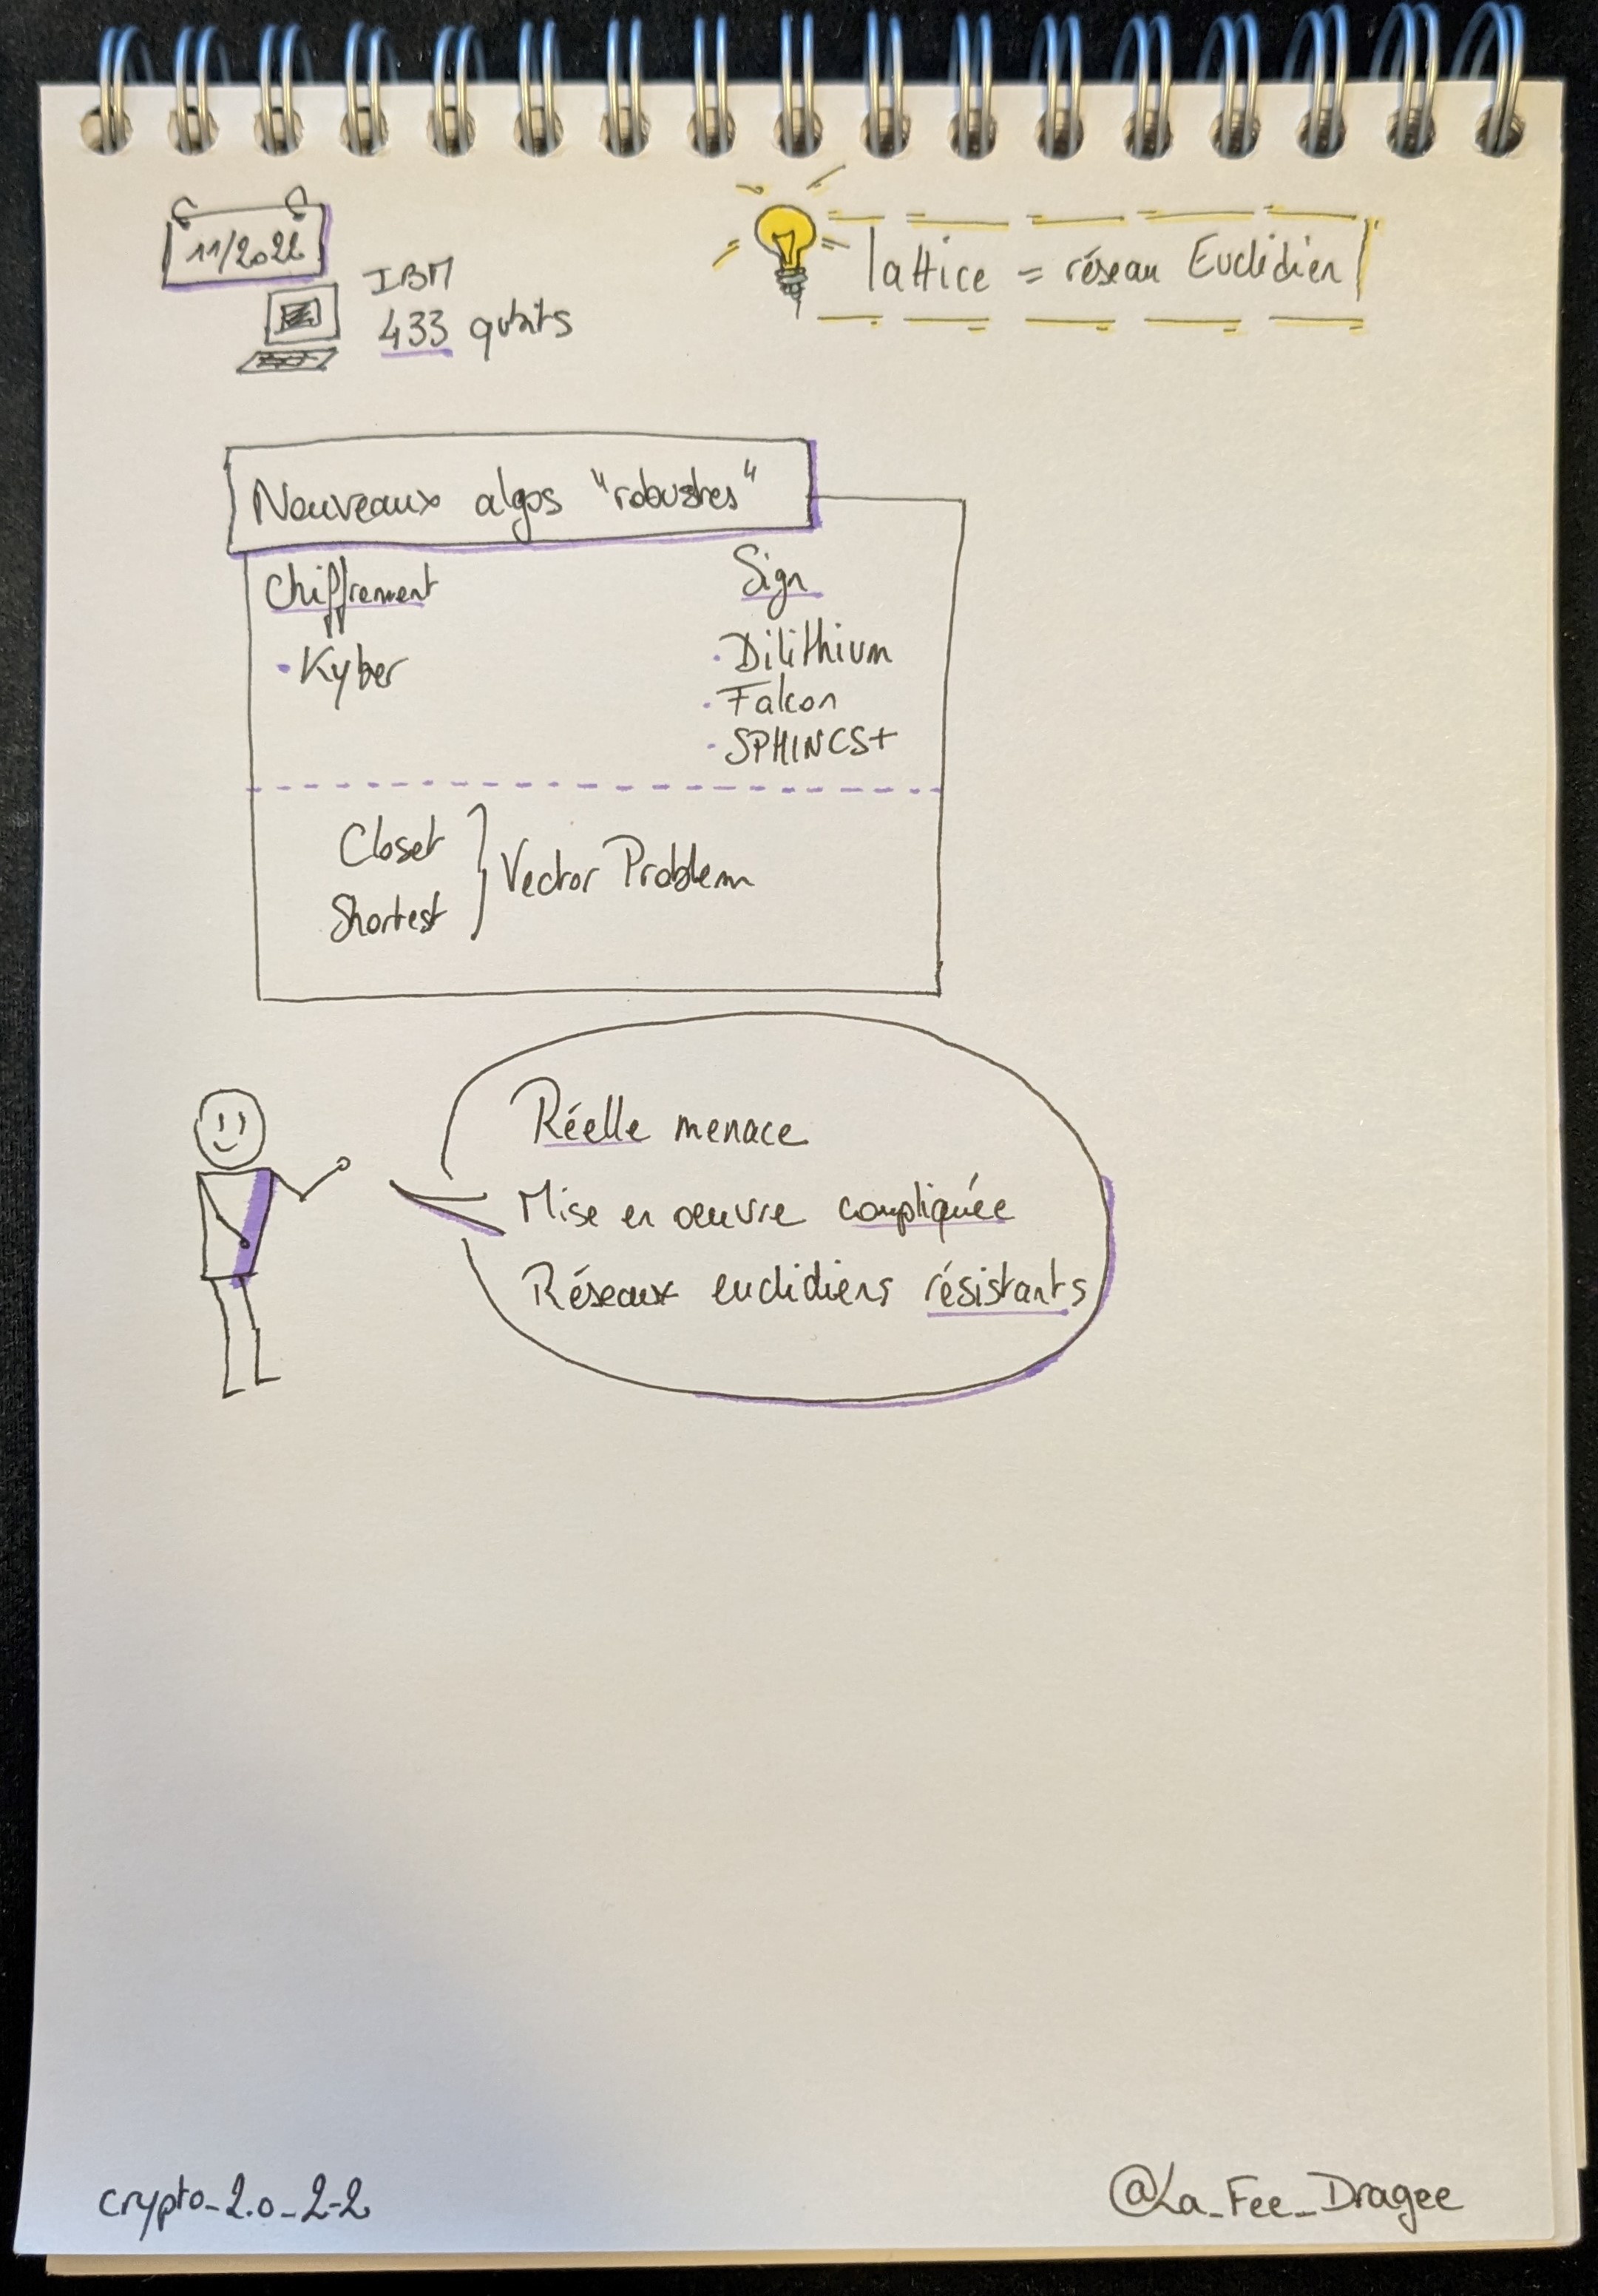 11/2022
IBM
433 qubits
lattice = réseau Euclidien
Nouveaux algos "robustes"
Chiffrement
• Kyber
Sign
• Dilithium
• Falcon
• SPHINCS+
Closet
Shortest
Vector Problem
Réelle menace
Mise en oeuvre compliquée
Réseaux euclidiens résistants
crypto_2.0_2-2
@La_Fee_Dragee